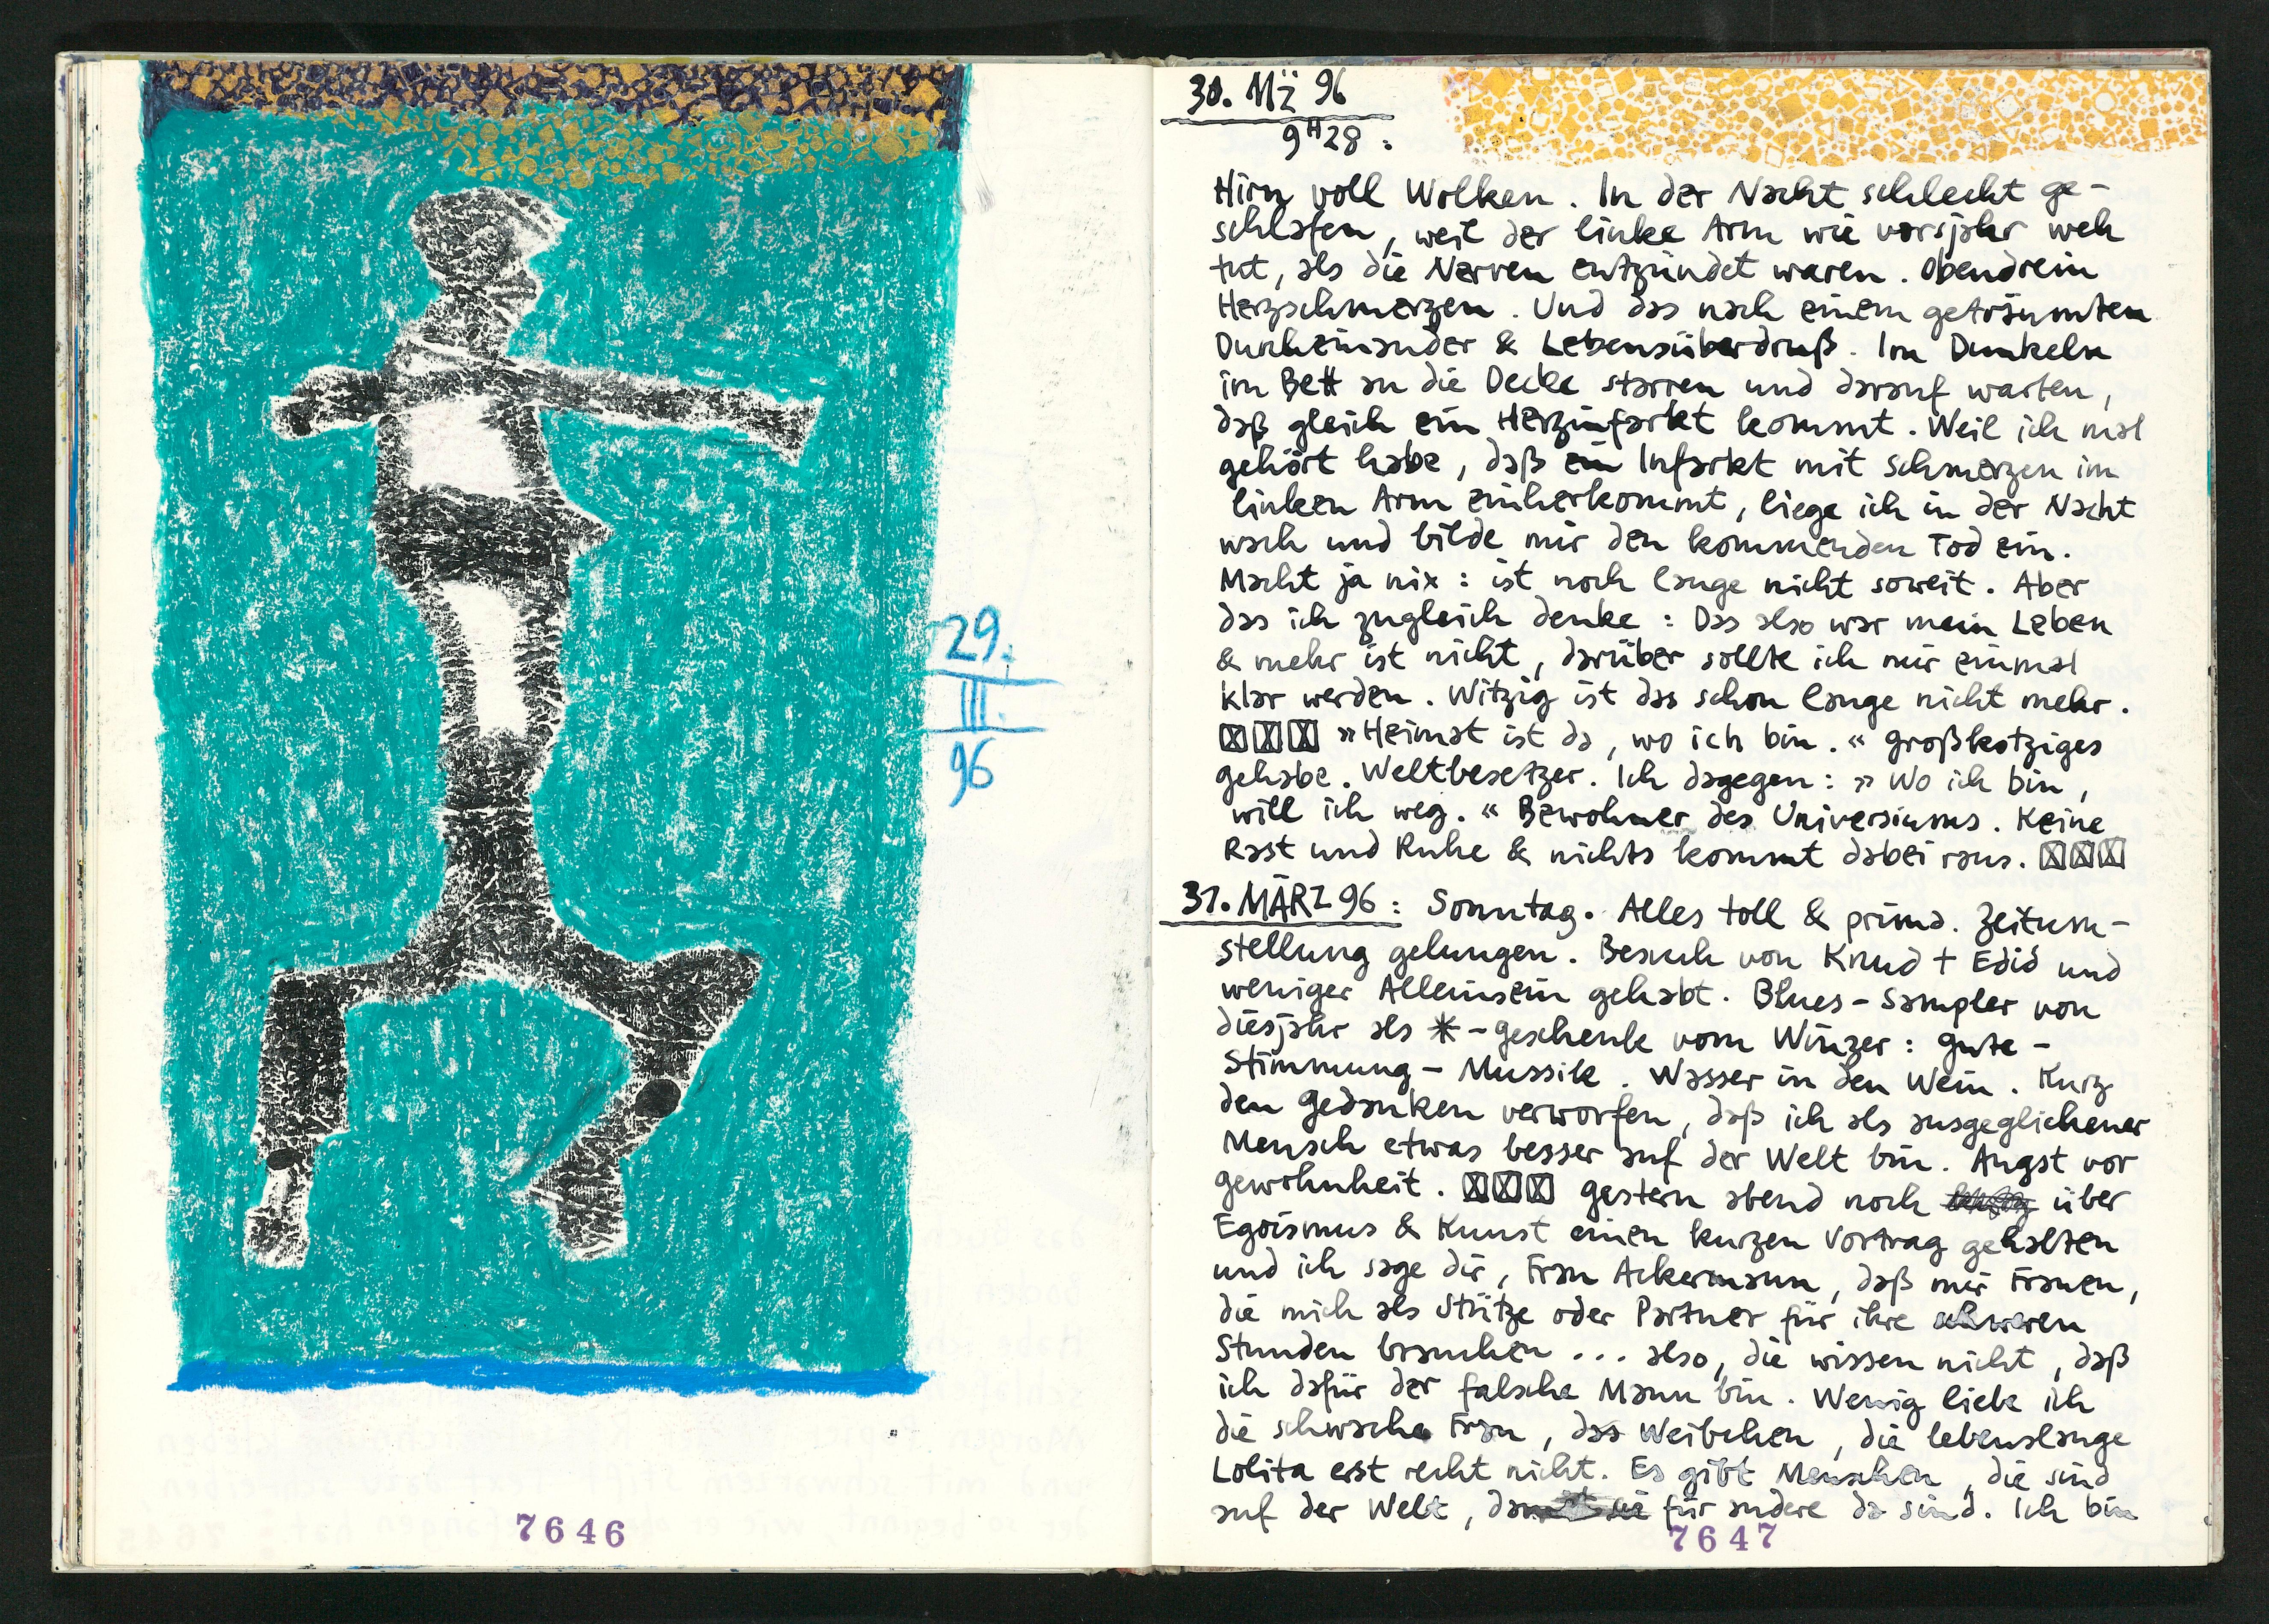 29.
III.
96
7646
30. Mz 96
9H28:
Hirn voll Wolken. In der Nacht schlecht ge-
schlafen, weil der linke Arm wie vorsjahr weh
tut, als die Nerven entzündet waren. Obendrein
Herzschmerzen. Und das nach einem geträumten
Durcheinander & Lebensüberdruß. Im Dunkeln
im Bett an die Decke starren und darauf warten,
daß gleich ein Herzinfarkt kommt. Weil ich mal
gehört habe, daß ein Infarkt mit Schmerzen im
linken Arm einherkommt, liege ich in der Nacht
wach und bilde mir den kommenden Tod ein.
Macht ja nix: ist noch lange nicht soweit. Aber
das ich zugleich denke: Das also war mein Leben
& mehr ist nicht, darüber sollte ich mir einmal
klar werden. Witzig ist das schon lange nicht mehr.
»Heimat ist da, wo ich bin.« Großkotziges
Gehabe. Weltbesetzer. Ich dagegen: »Wo ich bin,
will ich weg.« Bewohner des Universiums. Keine
Rast und Ruhe & nichts kommt dabei raus.
31. MÄRZ 96: Sonntag. Alles toll & prima. Zeitum-
stellung gelungen. Besuch von Knud + Edid und
weniger Alleinsein gehabt. Blues-Sampler von
diesjahr als *-geschenk vom Winzer: Gute-
Stimmung-Mussik. Wasser in den Wein. Kurz
den Gedanken verworfen, daß ich als ausgeglichener
Mensch etwas besser auf der Welt bin. Angst vor
Gewohnheit. Gestern abend noch über
Egoismus & Kunst einen kurzen Vortrag gehalten
und ich sage dir, Frau Ackermann, daß mir Frauen,
die mich als Stütze oder Partner für ihre schweren
Stunden brauchen ... also, die wissen nicht, daß
ich dafür der falsche Mann bin. Wenig liebe ich
die schwache Frau, das Weibchen, die lebenslange
Lolita erst recht nicht. Es gibt Menschen, die sind
auf der Welt, damit sie für andere da sind. Ich bin
7647